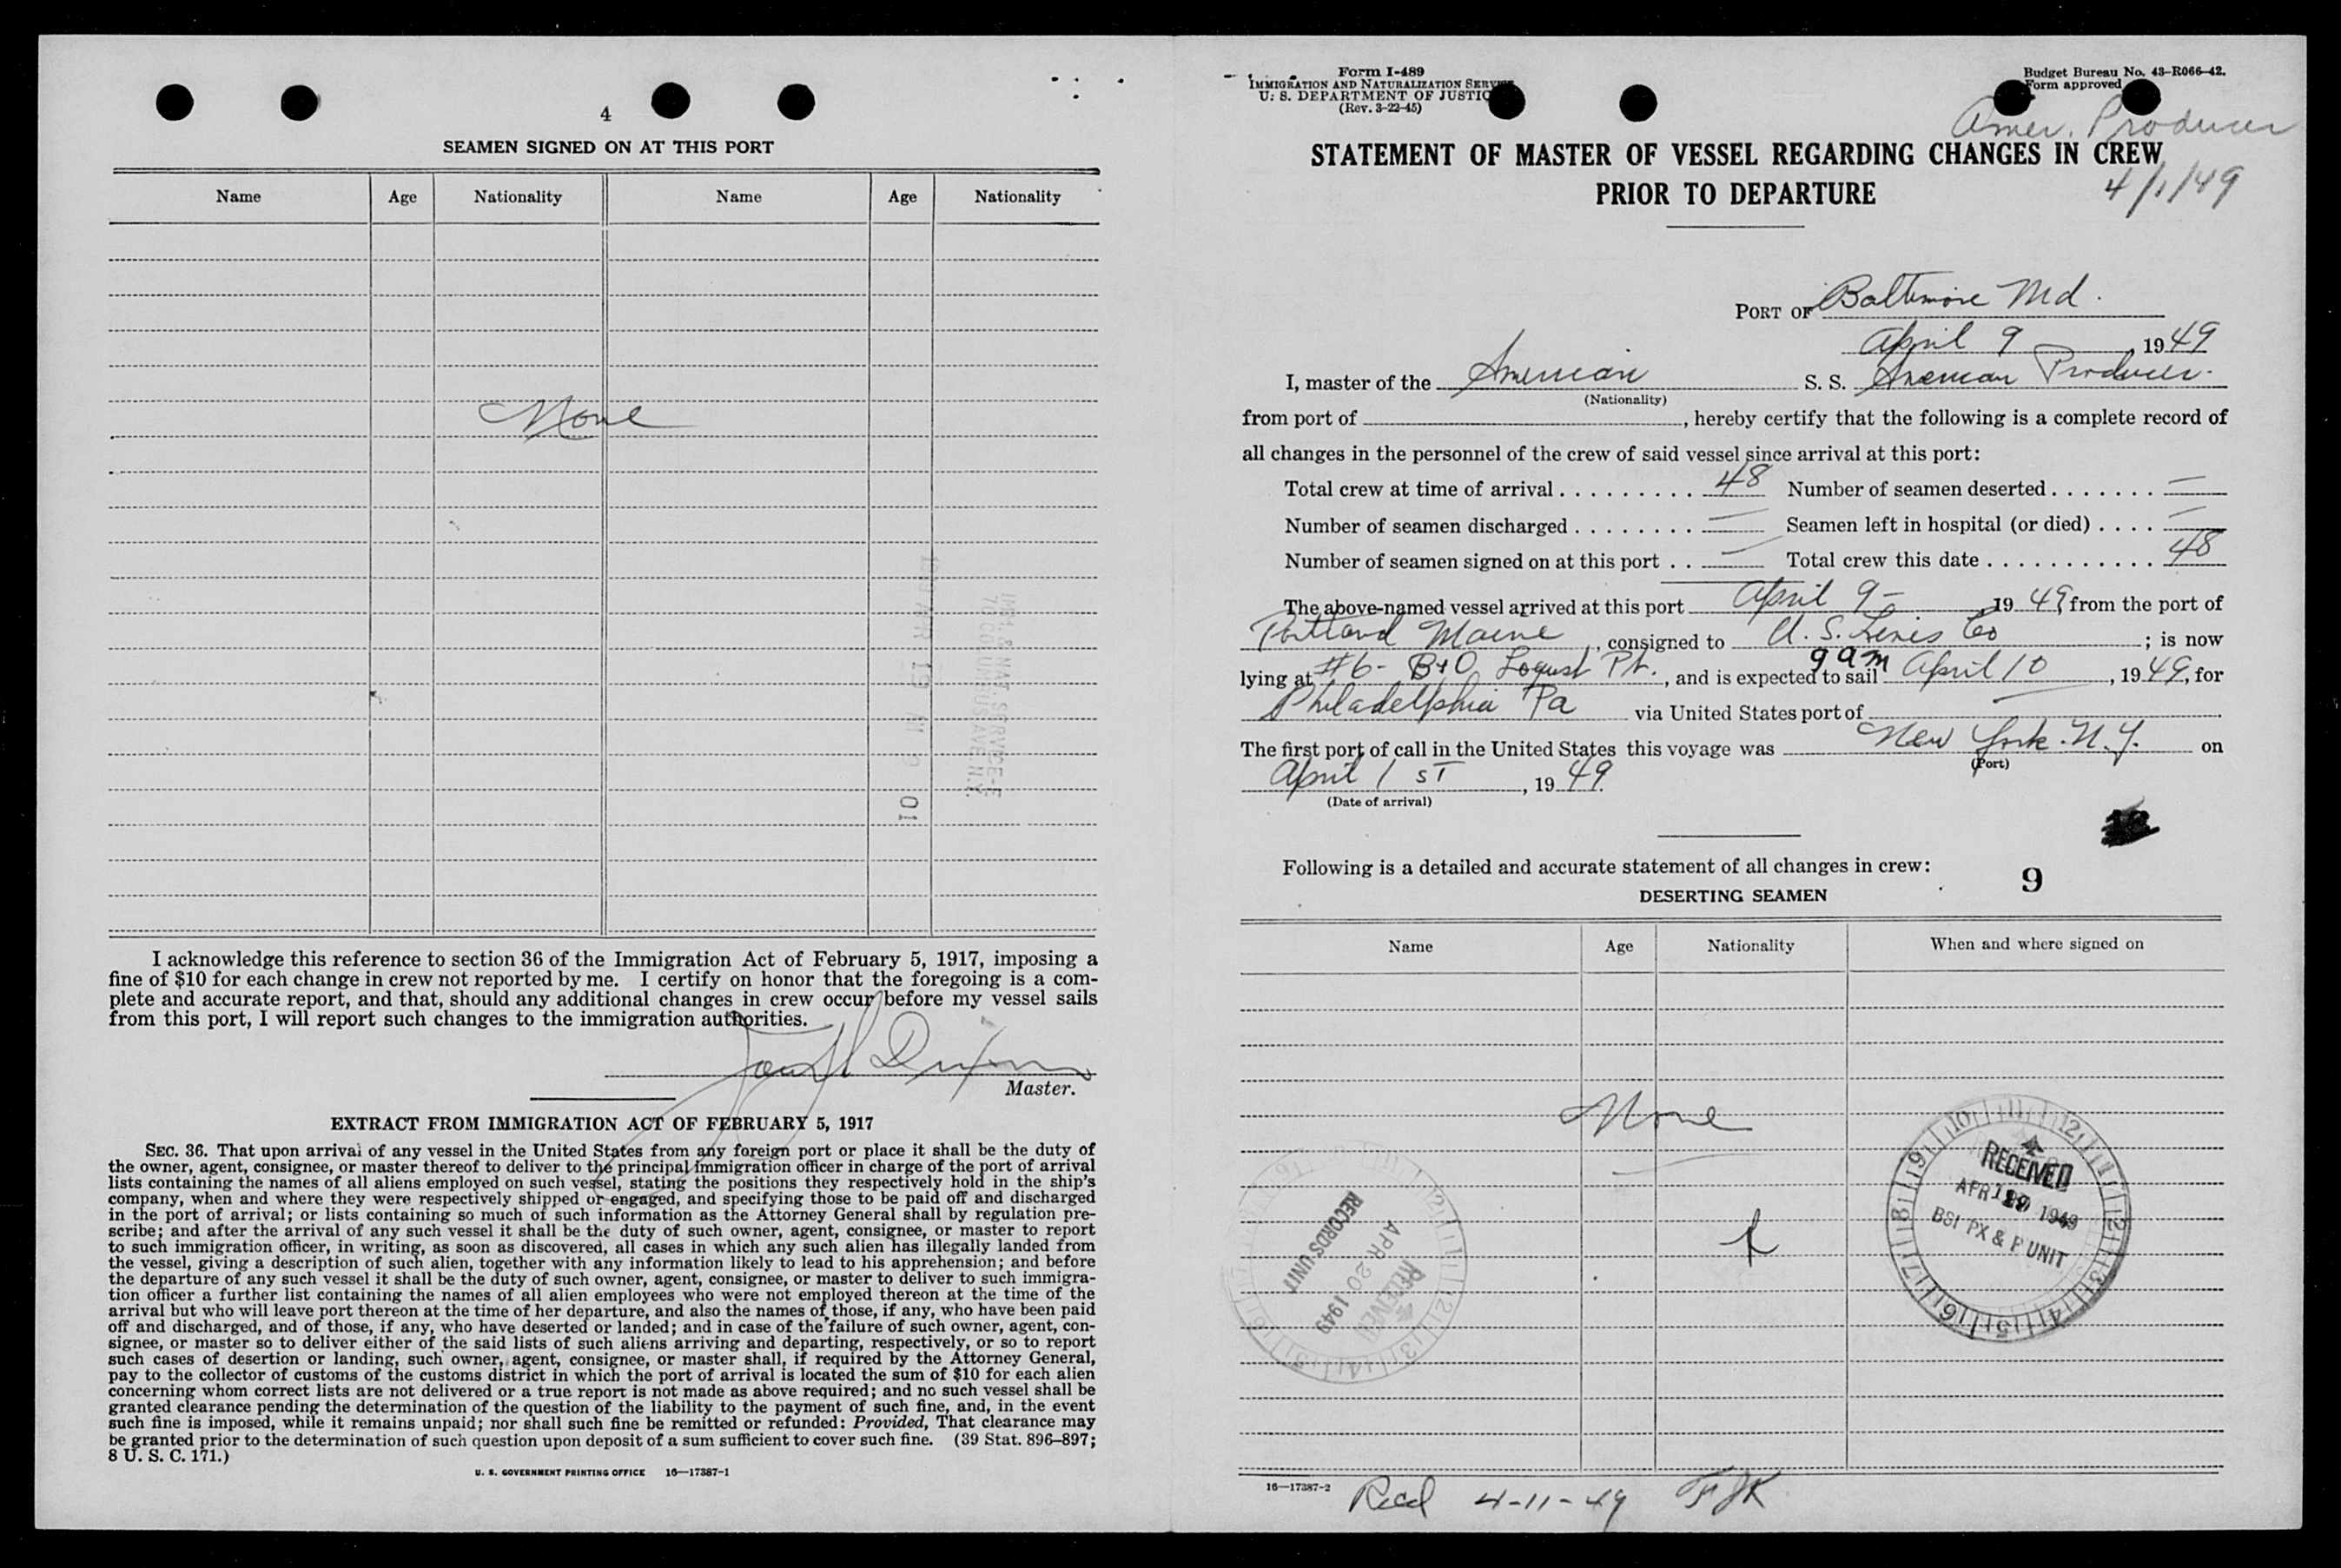 4
SEAMEN SIGNED ON AT THIS PORT
Name Age Nationality Name Age Nationality
None
I acknowledge this reference to section 36 of the Immigration Act of February 5, 1917, imposing a
fine of $10 for each change in crew not reported by me. I certify on honor that the foregoing is a com-
plete and accurate report, and that, should any additional changes in crew occur before my vessel sails
from this port, I will report such changes to the immigration authorities.
Master.
EXTRACT FROM IMMIGRATION ACT OF FEBRUARY 5, 1917
SEC. 36. That upon arrival of any vessel in the United States from any foreign port or place it shall be the duty of
the owner, agent, consignee, or master thereof to deliver to the principal immigration officer in charge of the port of arrival
lists containing the names of all aliens employed on such vessel, stating the positions they respectively hold in the ship's
company, when and where they were respectively shipped or engaged, and specifying those to be paid off and discharged
in the port of arrival; or lists containing so much of such information as the Attorney General shall by regulation pre-
scribe; and after the arrival of any such vessel it shall be the duty of such owner, agent, consignee, or master to report
to such immigration officer, in writing, as soon as discovered, all cases in which any such alien has illegally landed from
the vessel, giving a description of such alien, together with any information likely to lead to his apprehension; and before
the departure of any such vessel it shall be the duty of such owner, agent, consignee, or master to deliver to such immigra-
tion officer a further list containing the names of all alien employees who were not employed thereon at the time of the
arrival but who will leave port thereon at the time of her departure, and also the names of those, if any, who have been paid
off and discharged, and of those, if any, who have deserted or landed; and in case of the failure of such owner, agent, con-
signee, or master so to deliver either of the said lists of such aliens arriving and departing, respectively, or so to report
such cases of desertion or landing, such owner, agent, consignee, or master shall, if required by the Attorney General,
pay to the collector of customs of the customs district in which the port of arrival is located the sum of $10 for each alien
concerning whom correct lists are not delivered or a true report is not made as above required; and no such vessel shall be
granted clearance pending the determination of the question of the liability to the payment of such fine, and, in the event
such fine is imposed, while it remains unpaid; nor shall such fine be remitted or refunded: Provided, That clearance may
be granted prior to the determination of such question upon deposit of a sum sufficient to cover such fine. (39 Stat. 896–897;
8 U. S. C. 171.)
U. S. GOVERNMENT PRINTING OFFICE 16—17387-1
Form I-489
IMMIGRATION AND NATURALIZATION SERVICE
U. S. DEPARTMENT OF JUSTIC
(Rev. 3-22-45)
Budget Bureau No. 43–R066–42.
Form approved
Amer. Producer
STATEMENT OF MASTER OF VESSEL REGARDING CHANGES IN CREW
PRIOR TO DEPARTURE
4/1/49
PORT OF Baltimore Md.
April 9, 1949
I, master of the American S. S. American Producer.
(Nationality)
from port of , hereby certify that the following is a complete record of
all changes in the personnel of the crew of said vessel since arrival at this port:
Total crew at time of arrival 48 Number of seamen deserted —
Number of seamen discharged — Seamen left in hospital (or died) —
Number of seamen signed on at this port — Total crew this date 48
The above-named vessel arrived at this port April 9 – 1949, from the port of
Portland Maine, consigned to U. S. Lines Co; is now
lying at #6 - B+O Locust Pt., and is expected to sail 9 am April 10, 1949, for
Philadelphia Pa via United States port of —
The first port of call in the United States this voyage was New York. N.Y. on
(Port)
April 1 st, 1949
(Date of arrival)
Following is a detailed and accurate statement of all changes in crew: 9
DESERTING SEAMEN
Name Age Nationality When and where signed on
None
RECEIVED
APR 1949
BSI PX & P UNIT
RECEIVED
APR 20 1949
RECORDS UNIT
16—17387-2
Recd 4-11-49 FJK